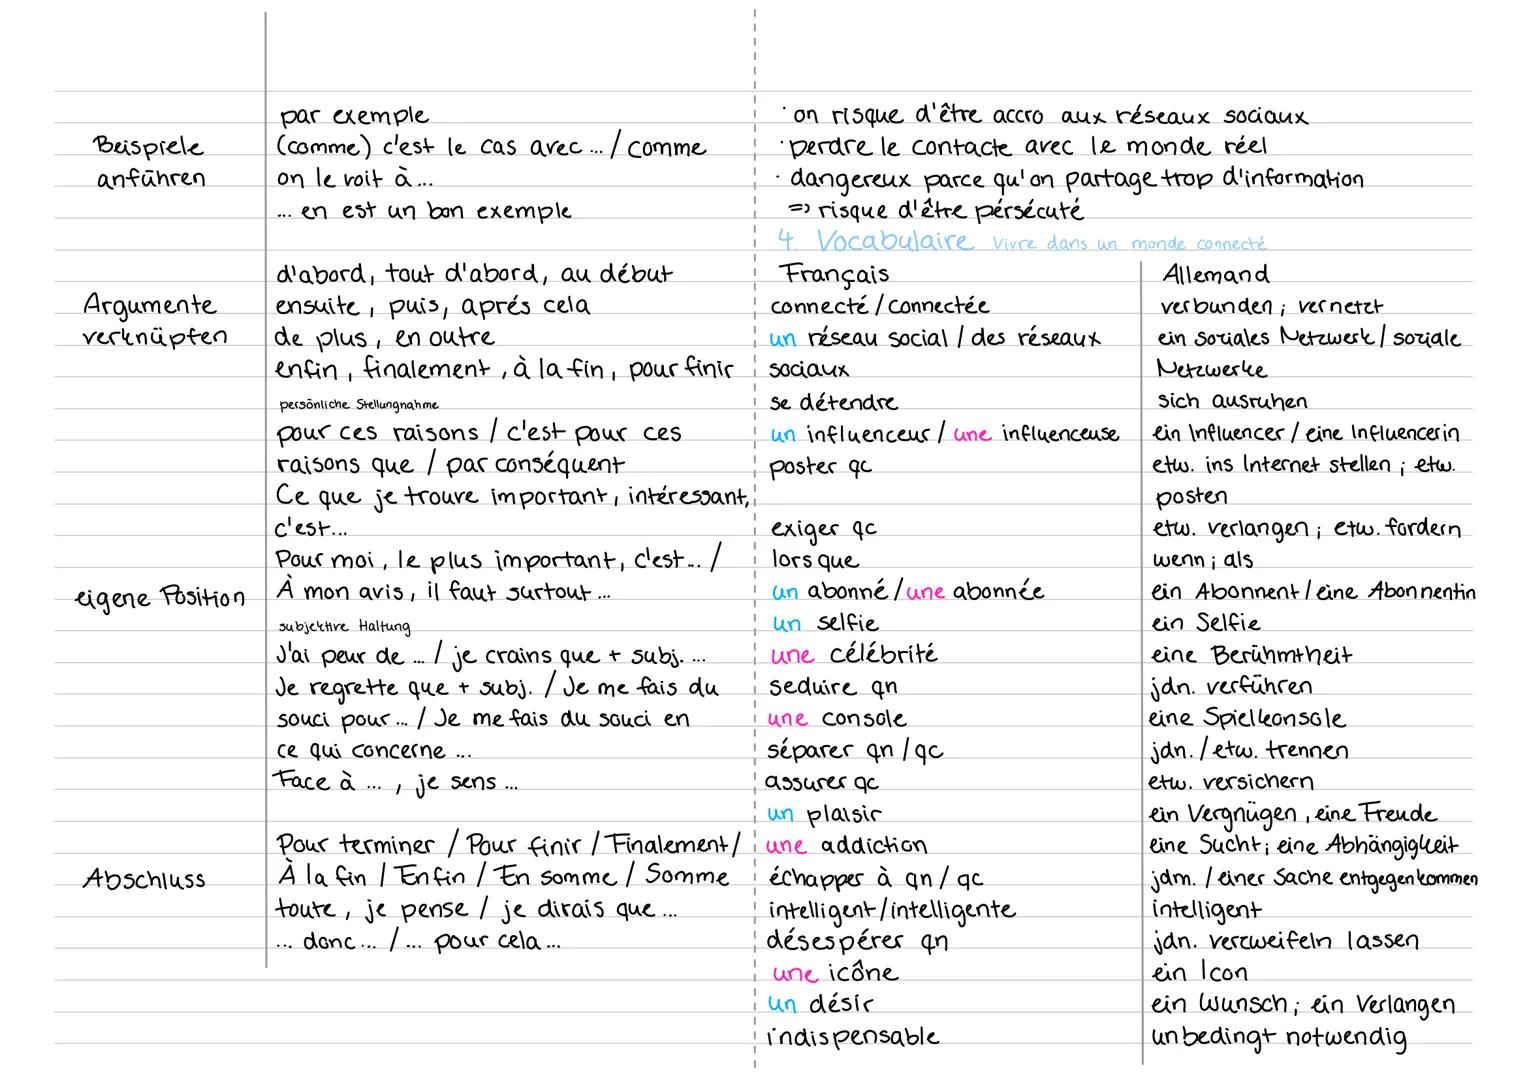 par exemple
Beispiele
(comme) c'est le cas avec ... / comme
anführen
on le voit à ...
... en est un bon exemple
d'abord, tout d'abord, au début
Argumente
ensuite, puis, aprés cela
verknüpfen
de plus, en outre
enfin, finalement, à la fin, pour finir
persönliche Stellungnahme
pour ces raisons / c'est pour ces
raisons que / par conséquent
Ce que je trouve important, intéressant,
c'est...
Pour moi, le plus important, c'est... /
eigene Position
À mon avis, il faut surtout ...
subjektive Haltung
J'ai peur de ... / je crains que + subj. ...
Je regrette que + subj. / Je me fais du
souci pour ... / Je me fais du souci en
ce qui concerne ...
Face à ..., je sens ...
Pour terminer / Pour finir / Finalement /
Abschluss
À la fin / Enfin / En somme / Somme
toute, je pense / je dirais que ...
... donc ... / ... pour cela ...
· on risque d'être accro aux réseaux sociaux
· perdre le contacte avec le monde réel
· dangereux parce qu'on partage trop d'information
=> risque d'être pérsécuté
4. Vocabulaire Vivre dans un monde connecté
Français Allemand
connecté / connectée verbunden ; vernetzt
un réseau social / des réseaux ein soziales Netzwerk / soziale
sociaux Netzwerke
se détendre sich ausruhen
un influenceur / une influenceuse ein Influencer / eine Influencerin
poster qc etw. ins Internet stellen ; etw.
posten
exiger qc etw. verlangen ; etw. fordern
lorsque wenn ; als
un abonné / une abonnée ein Abonnent / eine Abonnentin
un selfie ein Selfie
une célébrité eine Berühmtheit
seduire qn jdn. verführen
une console eine Spielkonsole
séparer qn / qc jdn. / etw. trennen
assurer qc etw. versichern
un plaisir ein Vergnügen, eine Freude
une addiction eine Sucht ; eine Abhängigkeit
échapper à qn / qc jdm. / einer Sache entgegenkommen
intelligent / intelligente intelligent
désespérer qn jdn. verzweifeln lassen
une icône ein Icon
un désir ein Wunsch ; ein Verlangen
indispensable unbedingt notwendig